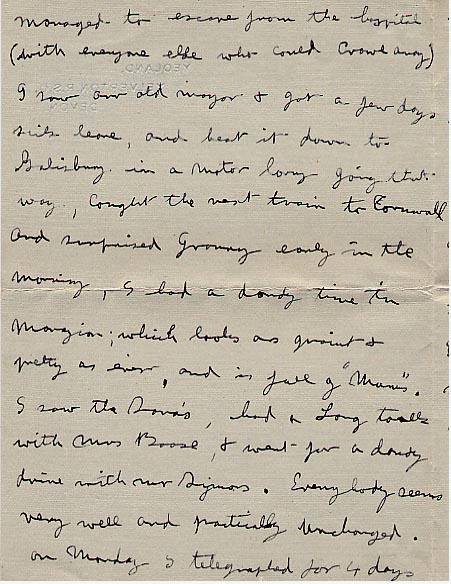 managed to escape from the hospital
(with everyone else who could Crowl away)
I saw our old mayor & got a few days
sick leave, and beat it down to
Salisbury in a motor lorry going that
way, caught the next train to Cornwall
and surprised Granny early in the
morning, I had a dandy time in
Marazion; which looks as quaint &
pretty as ever, and is full of "Mams".
I saw the , had a Long talk
with Mrs Boase, & went for a dandy
drive with Mr Symons. Everybody seems
very well and practically unchanged.
on Monday I telegraphed for 4 days